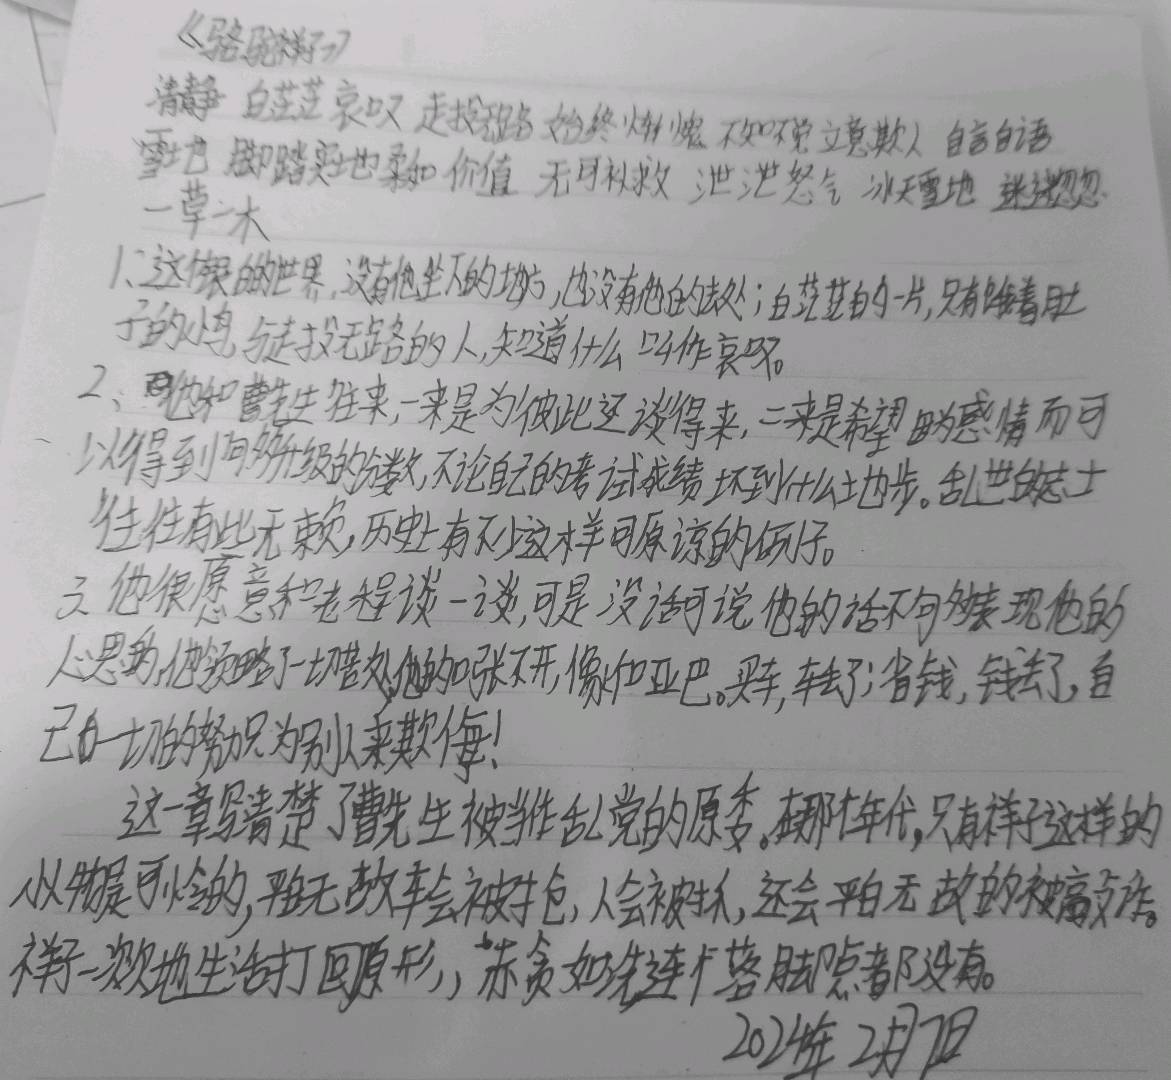 《骆驼祥子》
清静 白茫茫 哀叹 走投无路 始终 惭愧 不知不觉 立意 欺人 自言自语
雪地 脚踏实地 柔和 价值 无可补救 泄泄怒气 冰天雪地 迷迷忽忽
一草一木
1、这银白的世界,没有他坐下的地方,也没有他的去处;白茫茫的一片,只有饿着肚
子的小鸟,与走投无路的人,知道什么叫作哀叹。
2、他和曹先生往来,一来是为彼此还谈得来,二来是希望因为感情而可
以得到够升级的分数,不论自己的考试成绩坏到什么地步。乱世的志士
往往有些无赖,历史上有不少这样可原谅的例子。
3、他很愿意和老程谈一谈,可是没话可说,他的话不够表现他的
心思的,他领略了一切苦处,他的口张不开,像个哑巴。买车,车丢了;省钱,钱丢了,自
己的一切的努力只为别人来欺侮!
这一章写清楚了曹先生被当作乱党的原委。在那个年代,只有祥子这样的
小人物是可怜的,平白无故车会被抢,人会被抓,还会平白无故的被敲诈。
祥子一次次地生活打回原形,赤贫如洗连个落脚点都没有。
2024年2月7日